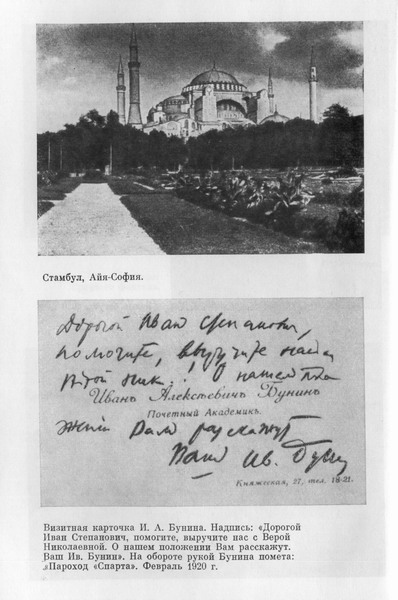 Стамбул, Айя-София.
Дорогой Иван Степанович,
помогите, выручите нас с
Верой Ник.! О нашем поло
Иванъ Алексѣевичъ Бунинъ
Почетный Академикъ.
жении Вам расскажут
Ваш Ив. Бунин
Княжеская, 27, тел. 18-21.
Визитная карточка И. А. Бунина. Надпись: «Дорогой
Иван Степанович, помогите, выручите нас с Верой
Николаевной. О нашем положении Вам расскажут.
Ваш Ив. Бунин». На обороте рукой Бунина помета:
«Пароход «Спарта». Февраль 1920 г.